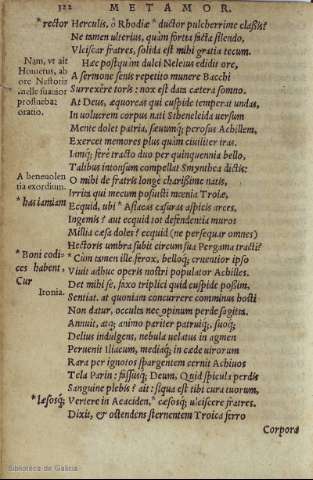 322 METAMOR.
*rector Herculis, ô Rhodiæ *ductor pulcherrime classis?
Ne tamen ulterius, quàm fortia facta silendo,
Vlciscar fratres, solida est mihi gratia tecum.
Hæc postquàm dulci Neleius edidit ore,
A sermone senis repetito munere Bacchi
Surrexêre toris: nox est data cætera somno.
At Deus, æquoreas qui cuspide temperat undas,
In uolucrem corpus nati Stheneleida uersum
Mente dolet patria, sæuumq́; perosus Achillem,
Exercet memores plus quàm ciuiliter iras.
Iamq́; ferè tracto duo per quinquennia bello,
Talibus intonsum compellat Smynthea dictis:
O mihi de fratris longè charissime natis,
Irrita qui mecum posuisti mœnia Troiæ,
Ecquid, ubi *has iamiam casuras aspicis arces,
Ingemis? aut ecquid tot defendentia muros
Millia cæsa doles? ecquid (ne persequar omnes)
Hectoris umbra subit circum sua Pergama tracti?
*Cùm tamen ille ferox, belloq́; cruentior ipso
Viuit adhuc operis nostri populator Achilles.
Det mihi se, faxo triplici quid cuspide possim,
Sentiat. at quoniam concurrere comminus hosti
Non datur, occulta nec opinum perde sagitta.
Annuit, atq; animo pariter patruiq́;, suoq́;
Delius indulgens, nebula uelatus in agmen
Peruenit Iliacum, mediaq́; in cæde uirorum
Rara per ignotos spargentem cernit Achiuos
Tela Parin: fassusq́; Deum, Quid spicula perdis
Sanguine plebis? ait: siqua est tibi cura tuorum,
Vertere in Aeaciden, *cæsosq́; ulciscere fratres.
Dixit, & ostendens sternentem Troica ferro
Corpora
Nam, ut ait
Homerus, ab
ore Nestoris
melle suauior
profluebat
oratio.
A beneuolen
tia exordium.
*has iamiam
*Boni codi-
ces habent,
Cur
Ironia.
*læsosq́;
Biblioteca de Galicia